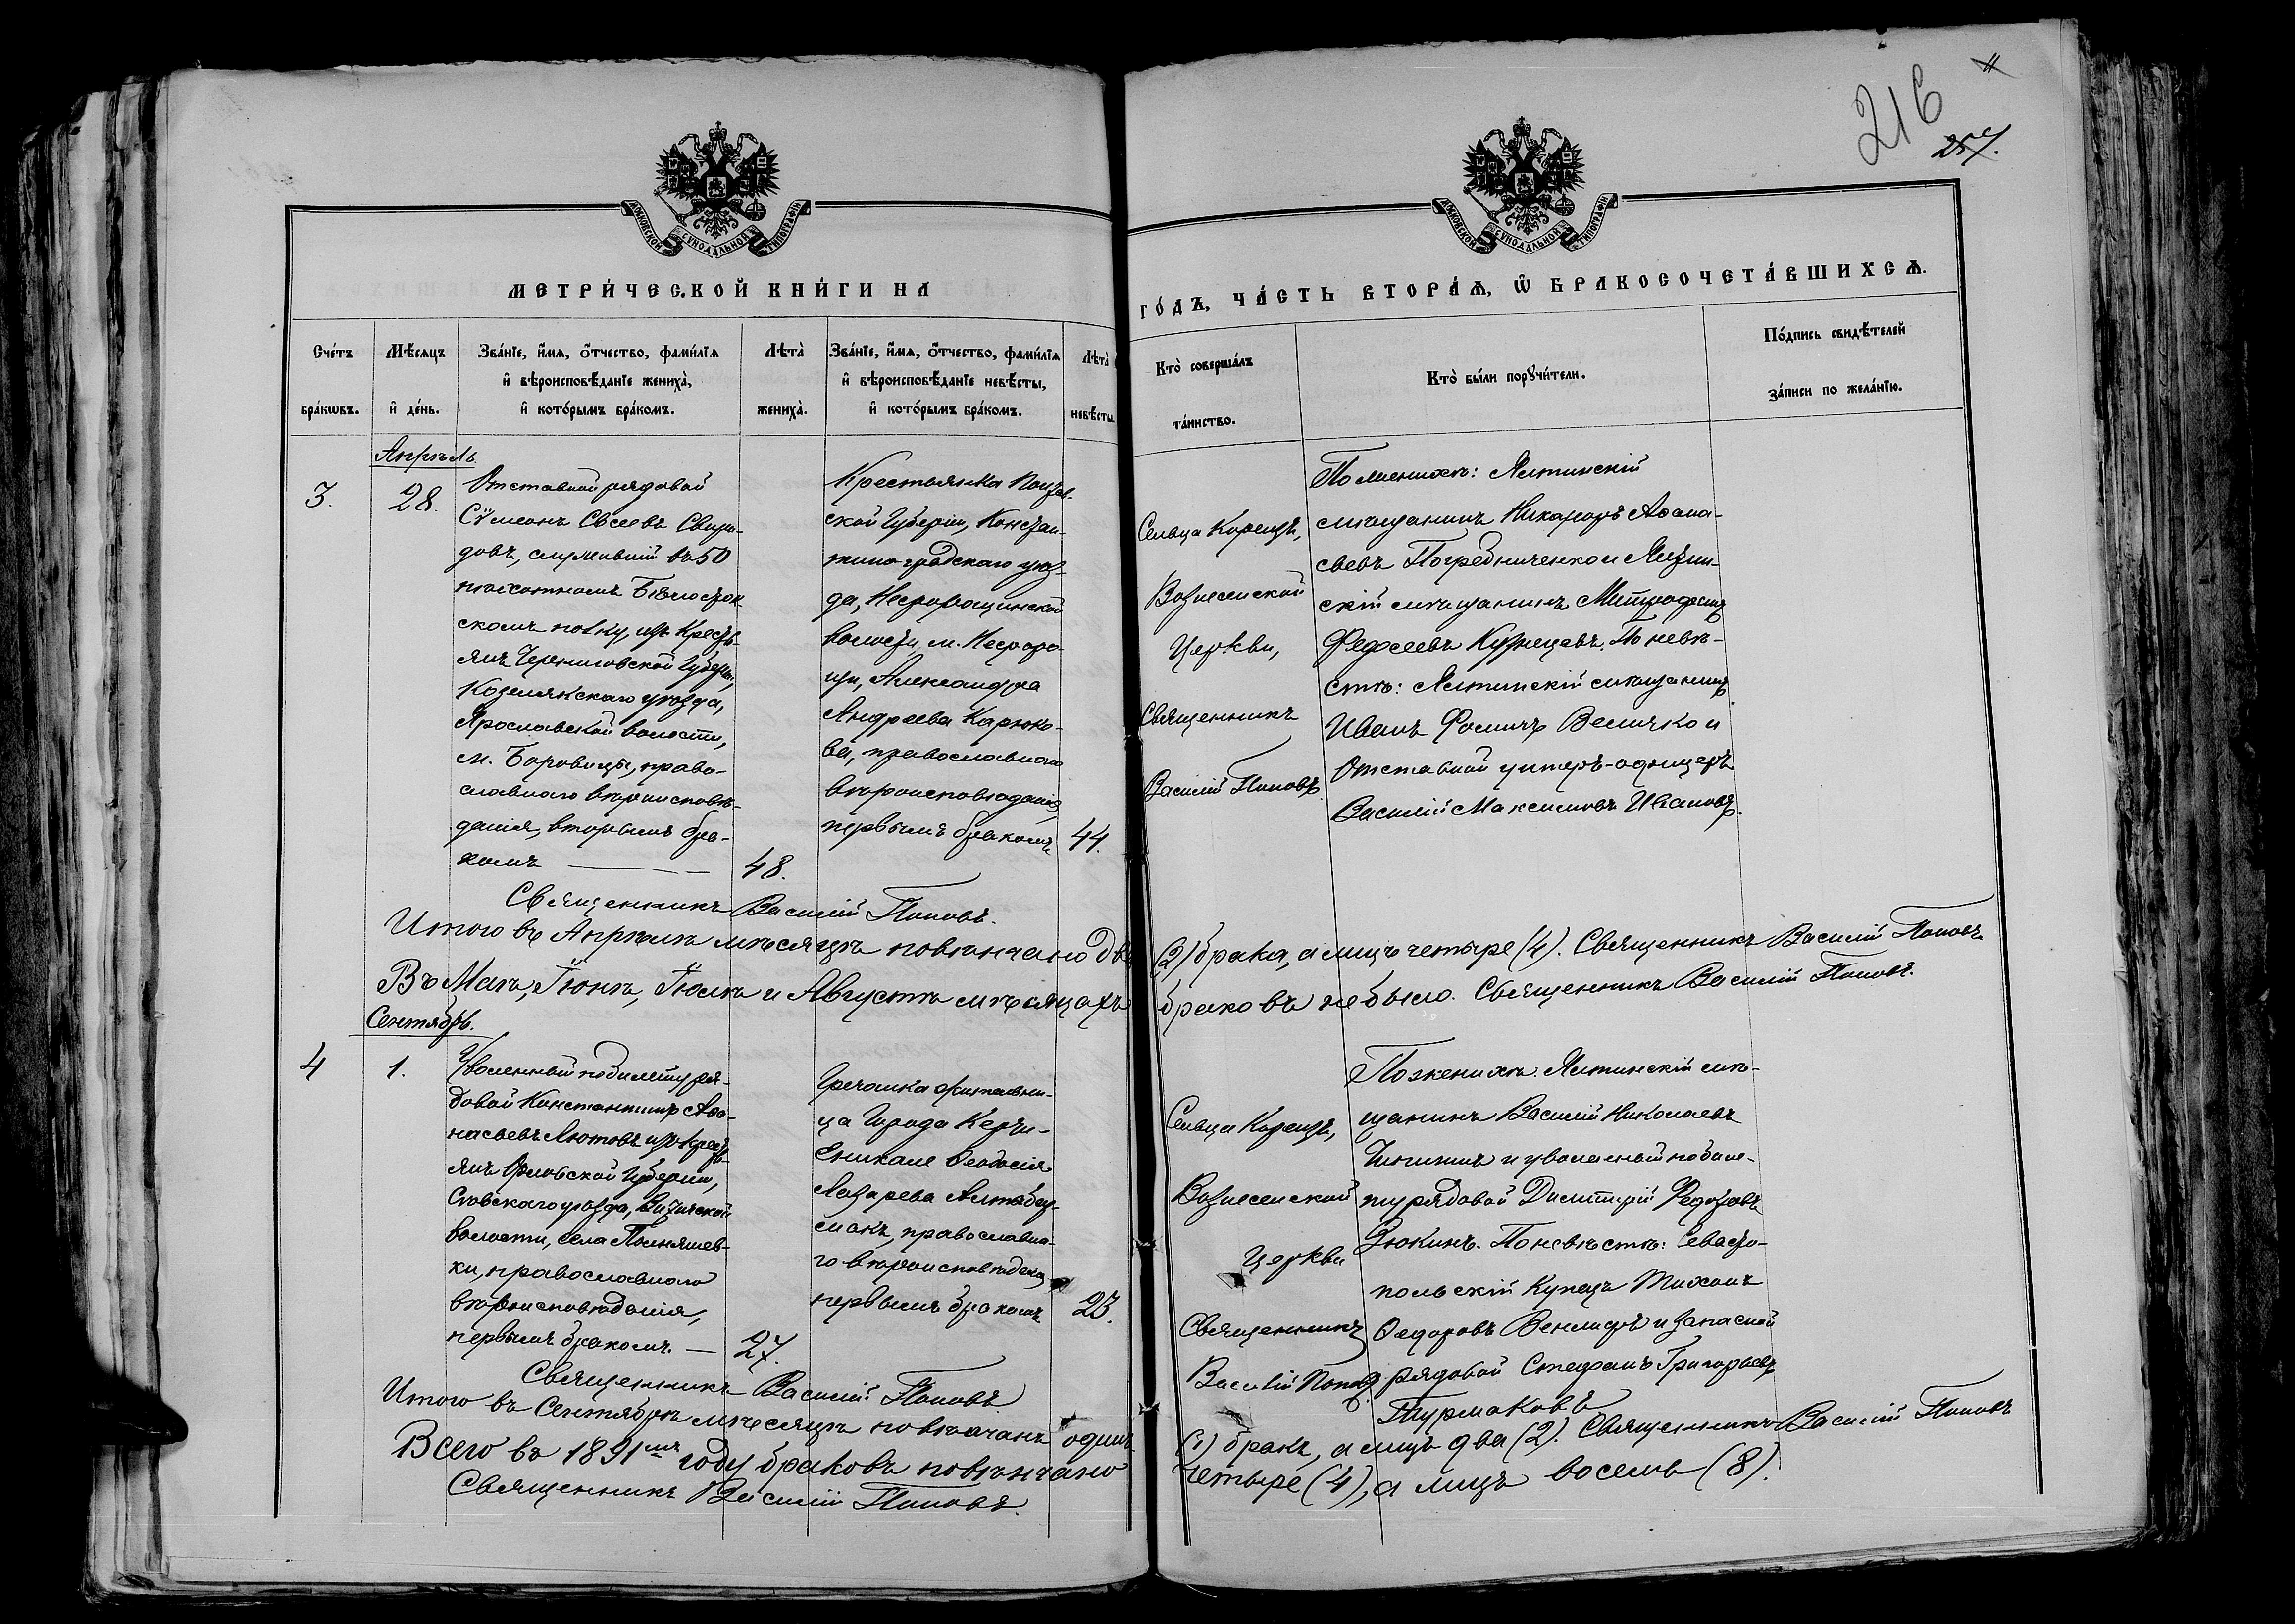 216
257.
МОСКОВСКОЙ СѴНОДАЛЬНОЙ ТИПОГРАФІИ
МОСКОВСКОЙ СѴНОДАЛЬНОЙ ТИПОГРАФІИ
МЕТРИ́ЧЕСКОЙ КНИ́ГИ НА
ГО́ДЪ, ЧА́СТЬ ВТОРА́Ѧ, Ѽ БРАКОСОЧЕТА́ВШИХСѦ.
Сче́тъ
бра́кѡвъ.
Мѣ́сяцъ
и҆ де́нь.
Зва́нїе, и҆́мѧ, ѻ҆́тчество, фами́лїѧ
и҆ вѣроисповѣ́данїе жениха̀,
и҆ кото́рымъ бра́комъ.
Лѣта̀
жениха̀.
Зва́нїе, и҆́мѧ, ѻ҆́тчество, фами́лїѧ
и҆ вѣроисповѣ́данїе невѣ́сты,
и҆ кото́рымъ бра́комъ.
Лѣта̀
невѣ́сты.
Кто̀ соверша́лъ
та́инство.
Кто̀ бы́ли порꙋчи́тели.
По́дпись свидѣ́телей
за́писи по жела́нїю.
Апрѣль.
3.
28.
Отставной рядовой
Сѵмеонъ Евсеевъ Свири-
довъ, служившій въ 50
пѣхотномъ Бѣлосток-
скомъ полку, изъ Кресть-
янъ Черниговской Губерніи,
Козелякскаго уѣзда,
Ярославской волости,
м. Боровицы, право-
славнаго вѣроисповѣ-
данія, вторымъ бра-
комъ
48.
Крестьянка Полтав-
ской Губерніи, Констан-
тиноградскаго уѣз-
да, Нехворощинской
волости, м. Нехворо-
щи, Александра
Андреева Карюко-
ва, православнаго
вѣроисповѣданія,
первымъ бракомъ
44.
Сельца Кореизъ,
Вознесенской
Церкви,
Священникъ
Василій Поповъ.
По женихѣ: Ялтинскій
мѣщанинъ Никаноръ Афана-
сьевъ Погребниченко и Ялтин-
скій мѣщанинъ Митрофанъ
Федосеевъ Кузнецовъ. По невѣ-
стѣ: Ялтинскій мѣщанинъ
Иванъ Фомичъ Величко и
Отставной унтеръ-офицеръ
Василій Максимовъ Ивановъ.
Священникъ Василій Поповъ.
Итого въ Апрѣлѣ мѣсяцѣ повѣнчано два (2) брака, а лицъ четыре (4). Священникъ Василій Поповъ
Въ Маѣ, Іюнѣ, Іюлѣ и Августѣ мѣсяцахъ браковъ не было. Священникъ Василій Поповъ.
Сентябрь.
4
1.
Уволенный по билету ря-
довой Константинъ Афа-
насьевъ Лютовъ изъ Кресть-
янъ Орловской Губерніи,
Сѣвскаго уѣзда,
волости, села
ки, православнаго
вѣроисповѣданія,
первымъ бракомъ.
27.
Гречанка жительни-
ца Города Керчи-
Еникале Ѳеодосія
Лазарева
православна-
го вѣроисповѣданія
первымъ бракомъ
23.
Сельца Кореизъ,
Вознесенской
Церкви
Священникъ
Василій Поповъ.
По женихѣ. Ялтинскій мѣ-
щанинъ Василій Николаевъ
и уволенный по биле-
ту рядовой Димитрій Федоровъ
Зюкинъ. По невѣстѣ: Севасто-
польскій Купецъ Тихонъ
Ѳедоровъ и запасной
рядовой Стефанъ Григорьевъ
Турмаковъ
Священникъ Василій Поповъ
Итого въ Сентябрѣ мѣсяцѣ повѣнчанъ одинъ (1) бракъ, а лицъ два (2). Священникъ Василій Поповъ
Всего въ 1891мъ году браковъ повѣнчано четыре (4), а лицъ восемь (8).
Священникъ Василій Поповъ.